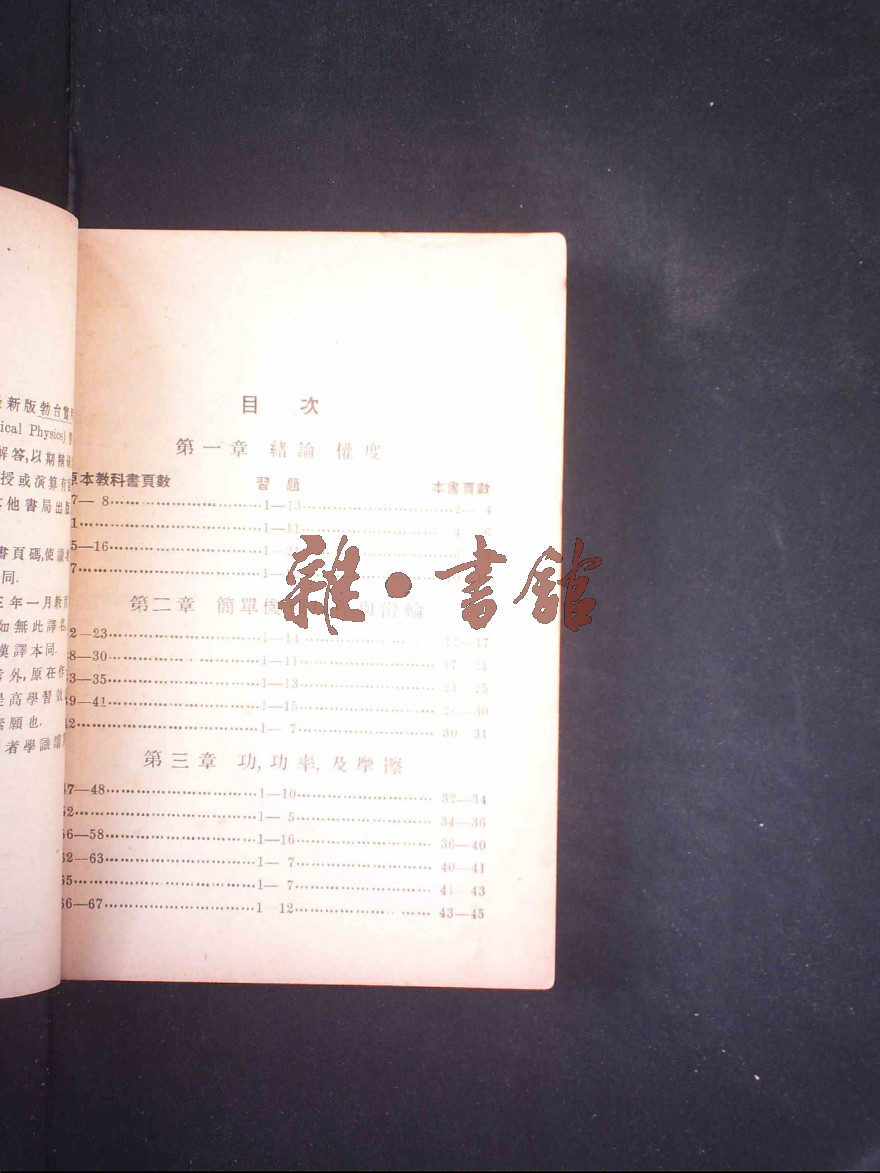 新版勃台實
ical Physics)
解答,以期
授或演算有
他書局出版
書頁碼,使讀
同.
三年一月教
如無此譯名
漢譯本同.
外,原在作
是高學習效
願也.
者學識
目次
第一章 緒論 權度
原本教科書頁數 習題 本書頁數
7—8 1—13 2—4
1 1—11 4—6
5—16 1—
7 1—
第二章 簡單機 滑輪
2—23 1—14 12—17
8—30 1—11 17—21
3—35 1—13 21—25
39—41 1—15 26—30
42 1—7 30—31
第三章 功,功率,及摩擦
47—48 1—10 32—34
52 1—5 34—36
56—58 1—16 36—40
62—63 1—7 40—41
65 1—7 41—43
66—67 1—12 43—45
雜·書館